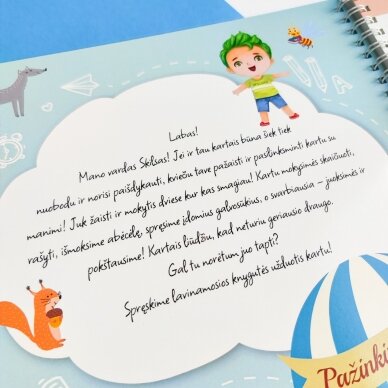 Labas!
Mano vardas Skilsas! Jei ir tau kartais būna šiek tiek
nuobodu ir norisi paišdykauti, kviečiu tave pažaisti ir pasilinksminti kartu su
manimi! Juk žaisti ir mokytis dviese kur kas smagiau! Kartu mokysimės skaičiuoti,
rašyti, išmoksime abėcėlę, spręsime įdomius galvosūkius, o svarbiausia – juoksimės ir
pokštausime! Kartais liūdžiu, kad neturiu geriausio draugo.
Gal tu norėtum juo tapti?
Spręskime lavinamosios knygutės užduotis kartu!
Pažinki